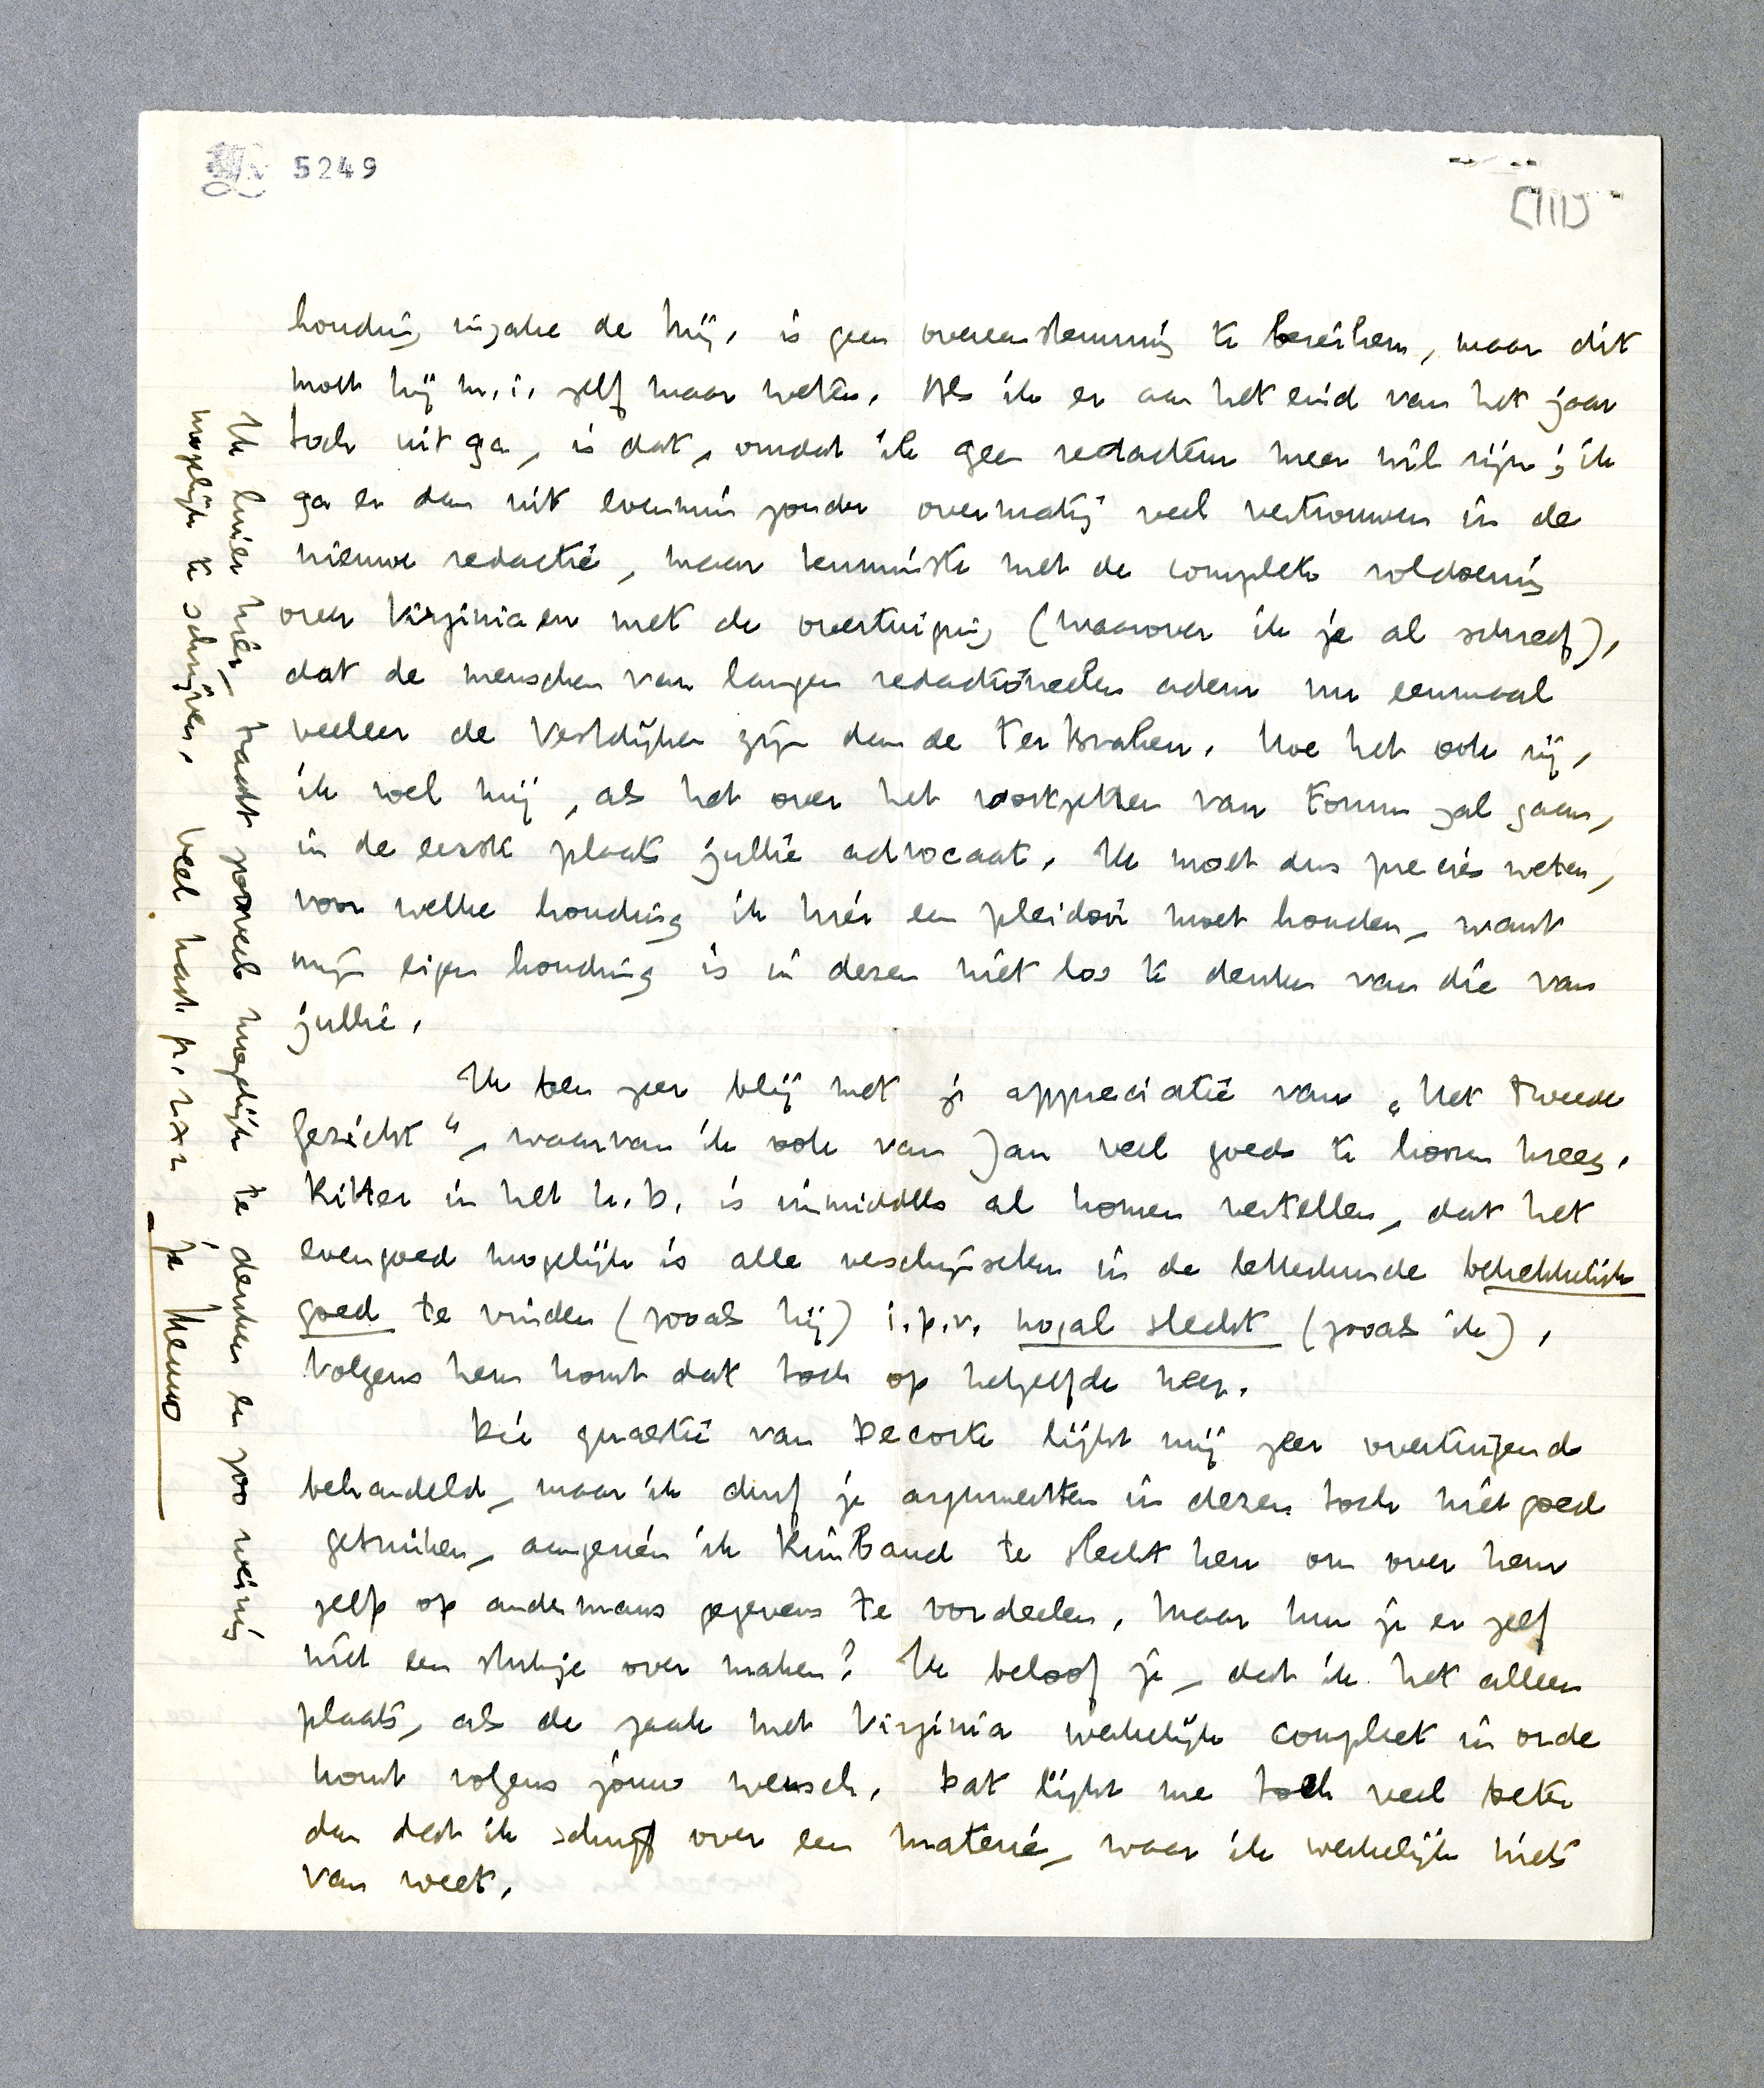 5249
[III]
houding inzake de Mij. is geen overeenstemming te bereiken, maar dit
moet hij m.i. zelf maar weten. Als ik er aan het eind van het jaar
toch uit ga, is dat, omdat ik geen redacteur meer wil zijn; ik
ga er dan uit evenmin zonder overmatig veel vertrouwen in de
nieuwe redactie, maar tenminste met de complete voldoening
over Virginia en met de overtuiging (waarover ik je al schreef),
dat de menschen van langen redactioneelen adem nu eenmaal
veeleer de Vestdijken zijn dan de Ter Braken. Hoe het ook zij,
ik voel mij, als het over het voortzetten van Forum zal gaan,
in de eerste plaats jullie advocaat. Ik moet dus precies weten,
voor welke houding ik hier een pleidooi moet houden, want
mijn eigen houding is in dezen niet los te denken van die van
jullie.
Ik ben zeer blij met je appreciatie van „Het Tweede
Gezicht", waarvan ik ook van Jan veel goeds te hooren kreeg.
Ritter in het U.D. is inmiddels al komen vertellen, dat het
evengoed mogelijk is alle verschijnselen in de letterkunde betrekkelijk
goed te vinden (zooals hij) i.p.v. nogal slecht (zooals ik).
Volgens hem komt dat toch op hetzelfde neer.
Die quaestie van Decorte lijkt mij zeer overtuigend
behandeld, maar ik durf je argumenten in dezen toch niet goed
gebruiken, aangezien ik Rimbaud te slecht ken om over hem
zelf op andermans gegevens te oordeelen. Maar kun je er zelf
niet een stukje over maken? Ik beloof je, dat ik het alleen
plaats, als de zaak met Virginia werkelijk compleet in orde
komt volgens jouw wensch. Dat lijkt me toch veel beter
dan dat ik schrijf over een materie, waar ik werkelijk niets
van weet.
Ik luier hier, tracht zooveel mogelijk te denken en zoo weinig
mogelijk te schrijven. Veel hart. gr. 2 x 2
je Menno